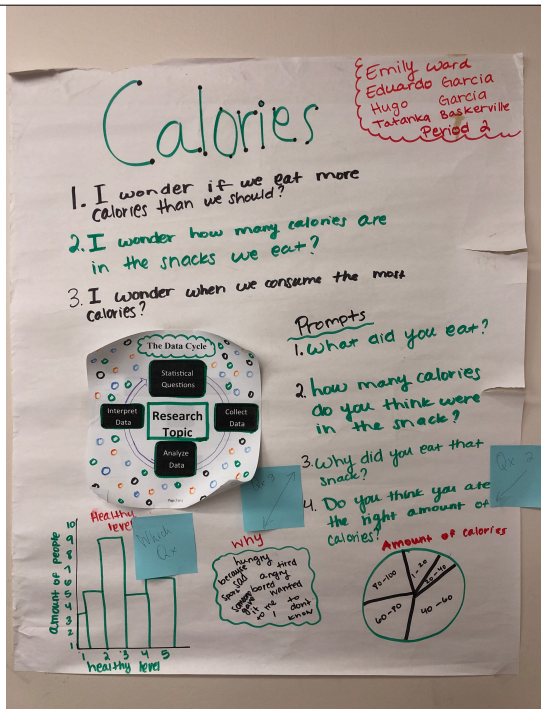 Emily Ward
Eduardo Garcia
Hugo Garcia
Tatanka Baskerville
Period 2
Calories
1. I wonder if we eat more
calories than we should?
2. I wonder how many calories are
in the snacks we eat?
3. I wonder when we consume the most
calories?
The Data Cycle
Statistical
Questions
Interpret
Data
Research
Topic
Collect
Data
Analyze
Data
Prompts
1. what did you eat?
2. how many calories
do you think were
in the snack?
3. Why did you eat that
snack?
4. Do you think you ate
the right amount of
calories?
Qx 2
Which
Qx
Healthy
level
amount of people
10
9
8
7
6
5
4
3
2
1
1 2 3 4 5
healthy level
why
hungry
because
tired
sad
angry
bored
wanted
gave
it to me
to
I dont
know
Amount of calories
80-100
1-20
20-40
60-80
40-60